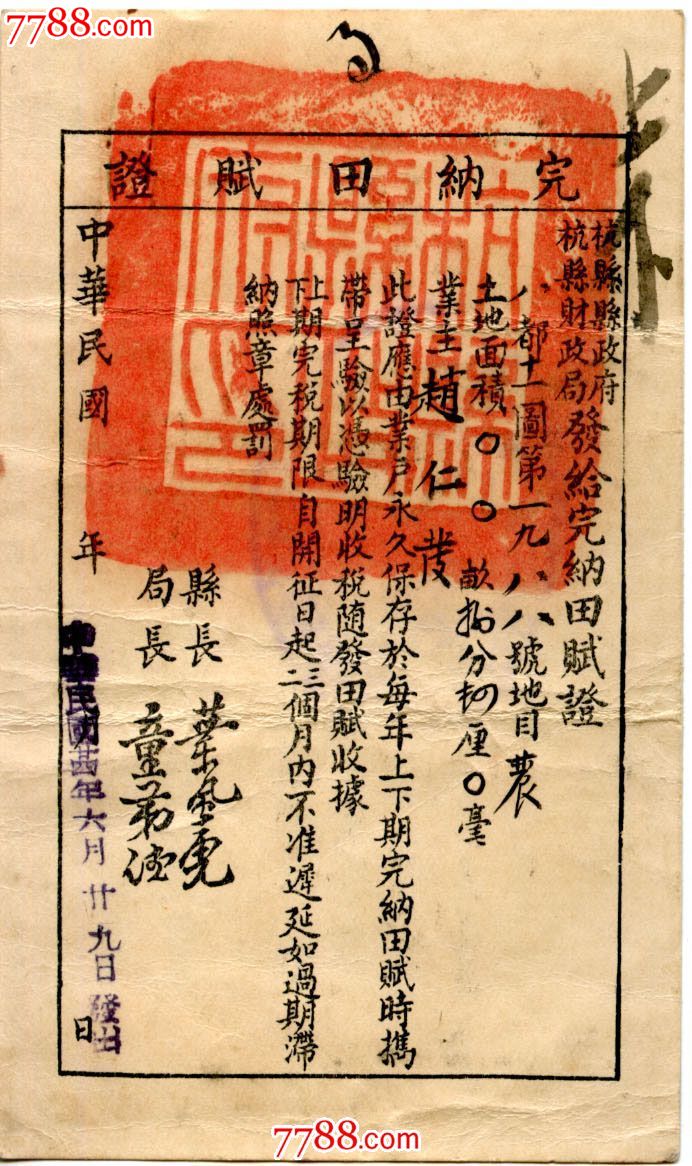 7788.com
完納田賦證
杭縣縣政府
杭縣財政局發給完納田賦證
八都十一圖第一九八八號地目農
土地面積〇〇畝 分 厘〇毫
業主趙仁發
此證應由業戶永久保存於每年上下期完納田賦時攜
帶呈驗以憑驗明收稅隨發田賦收據
上下期完稅期限自開征日起二三個月內不准遲延如過期滯
納照章處罰
縣長 葉風虎
局長 童弟德
中華民國 年 日
中華民國廿四年六月廿九日發出
7788.com